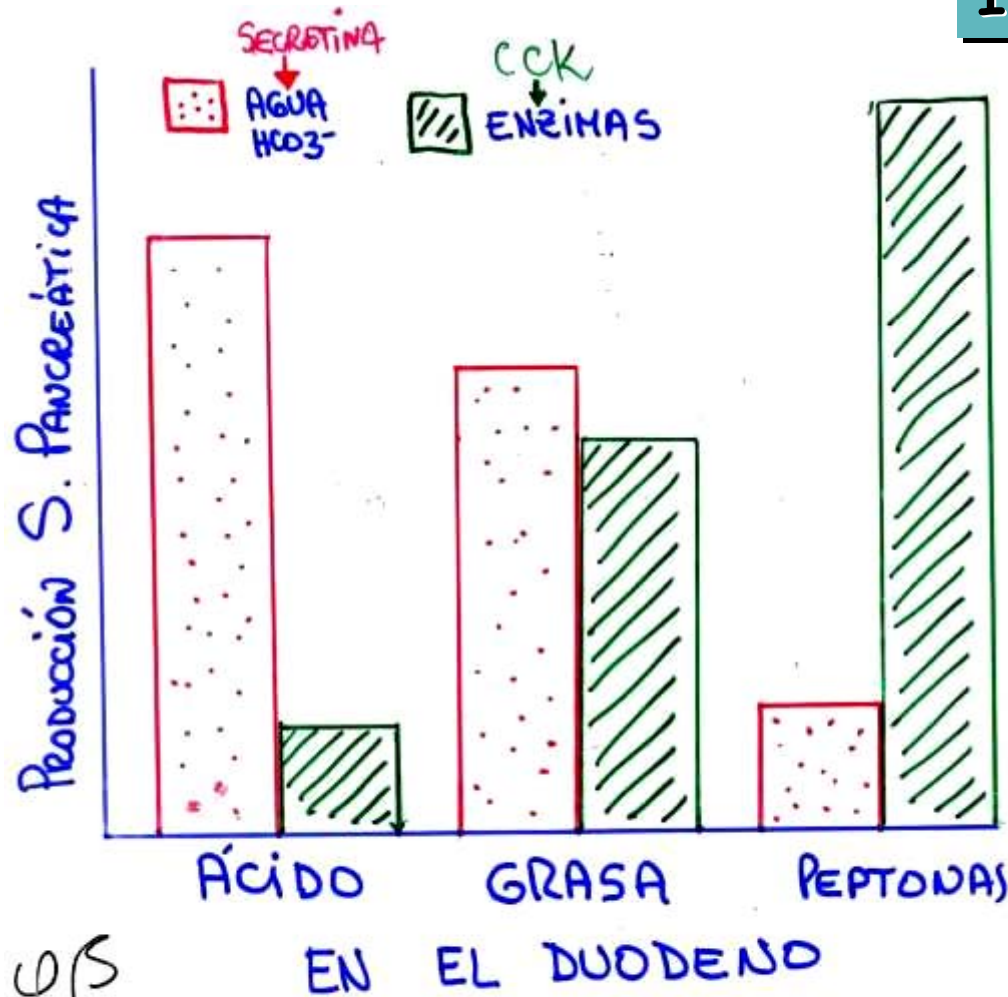 1
SECRETINA
CCK
AGUA
HCO3-
ENZIMAS
PRODUCCIÓN S. PANCREÁTICA
ÁCIDO GRASA PEPTONAS
EN EL DUODENO